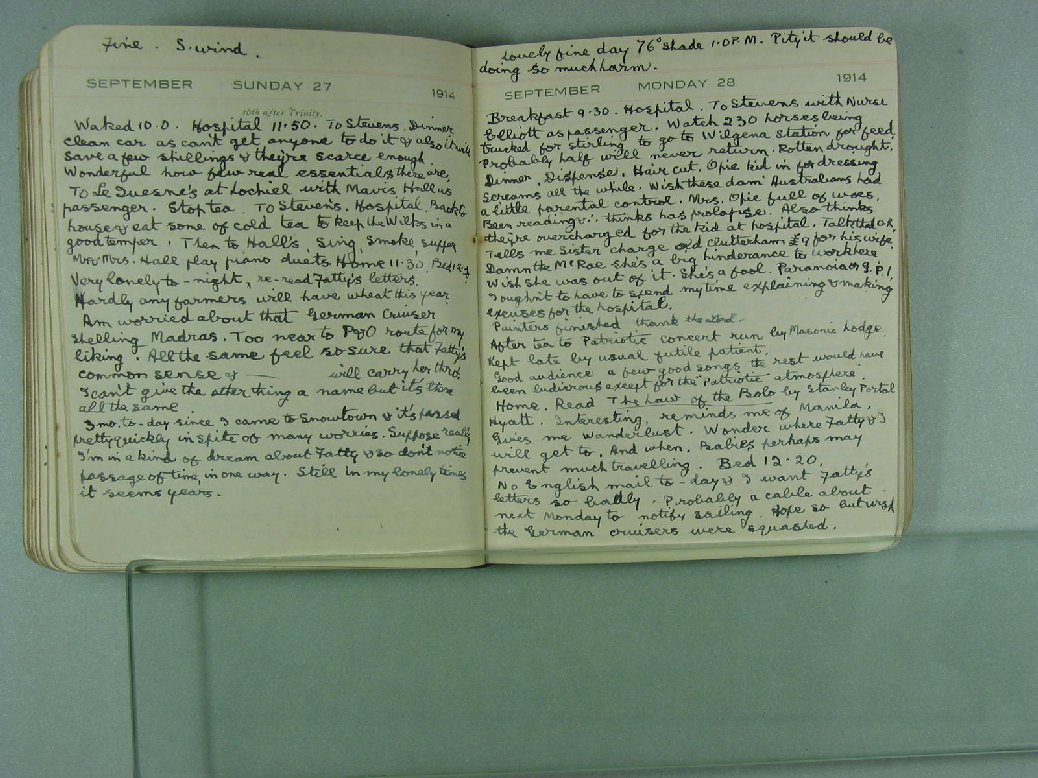 Fine. S. wind.
SEPTEMBER SUNDAY 27 1914
16th after Trinity.
Waked 10.0. Hospital 11.50. To Stevens. Dinner,
clean car as can't get anyone to do it & also it will
save a few shillings & they're scarce enough.
Wonderful how few real essentials there are,
To Le Quesne's at Lochiel with Mavis Hall as
passenger. Stop tea. To Steven's. Hospital. Back to
house & eat some of cold tea to keep the Wilks in a
good temper. Then to Hall's, Sing, Smoke, supper
Mr & Mrs. Hall play piano duets. Home 11.30. Bed
Very lonely to-night, re-read Fatty's letters.
Hardly any farmers will have wheat this year
Am worried about that German Cruiser
shelling Madras. Too near to P & O route for my
liking. All the same feel so sure that Fatty's
common sense & ——— will carry her thro,
I can't give the other thing a name but it's there
all the same
3 mo. to-day since I came to Snowtown & it's passed
pretty quickly in spite of many worries. Suppose really
I'm in a kind of dream about Fatty & so don't notice
passage of time, in one way. Still in my lonely times
it seems years.
Lovely fine day 76° shade 1.0 P.M. Pity it should be
doing so much harm.
SEPTEMBER MONDAY 28 1914
Breakfast 9.30. Hospital. To Stevens with Nurse
Elliott as passenger. Watch 230 horses being
trucked for stirling to go to Wilgena Station for feed,
Probably half will never return. Rotten drought.
Dinner, Dispense. Hair cut. Opie kid in for dressing
screams all the while. Wish these dam' Australians had
a little parental control. Mrs. Opie full of woes.
Been reading & thinks has prolapse. Also thinks
they're overcharged for the kid at hospital. Talk
Tells me Sister charge old Clutterham £9 for his wife,
Damn the McRae she's a big hinderance to work here
Wish she was out of it. She's a fool. Paranoia or G.P.I,
I oughn't to have to spend my time explaining & making
excuses for the hospital.
Painters finished thank the Lord.
After tea to Patriotic concert run by Masonic Lodge
Kept late by usual futile patient.
Good audience a few good songs the rest would have
been ludicrous except for the "Patriotic" atmosphere
Home. Read The Law of the Bolo by Stanley Portal
Hyatt. Interesting, reminds me of Manila.
Gives me Wanderlust. Wonder where Fatty & I
will get to. And when. Babies perhaps may
prevent much travelling. Bed 12.20.
No English mail to-day & I want Fatty's
letters so badly. Probably a cable about
next Monday to notify sailing. Hope so but wish
the German cruisers were squashed.